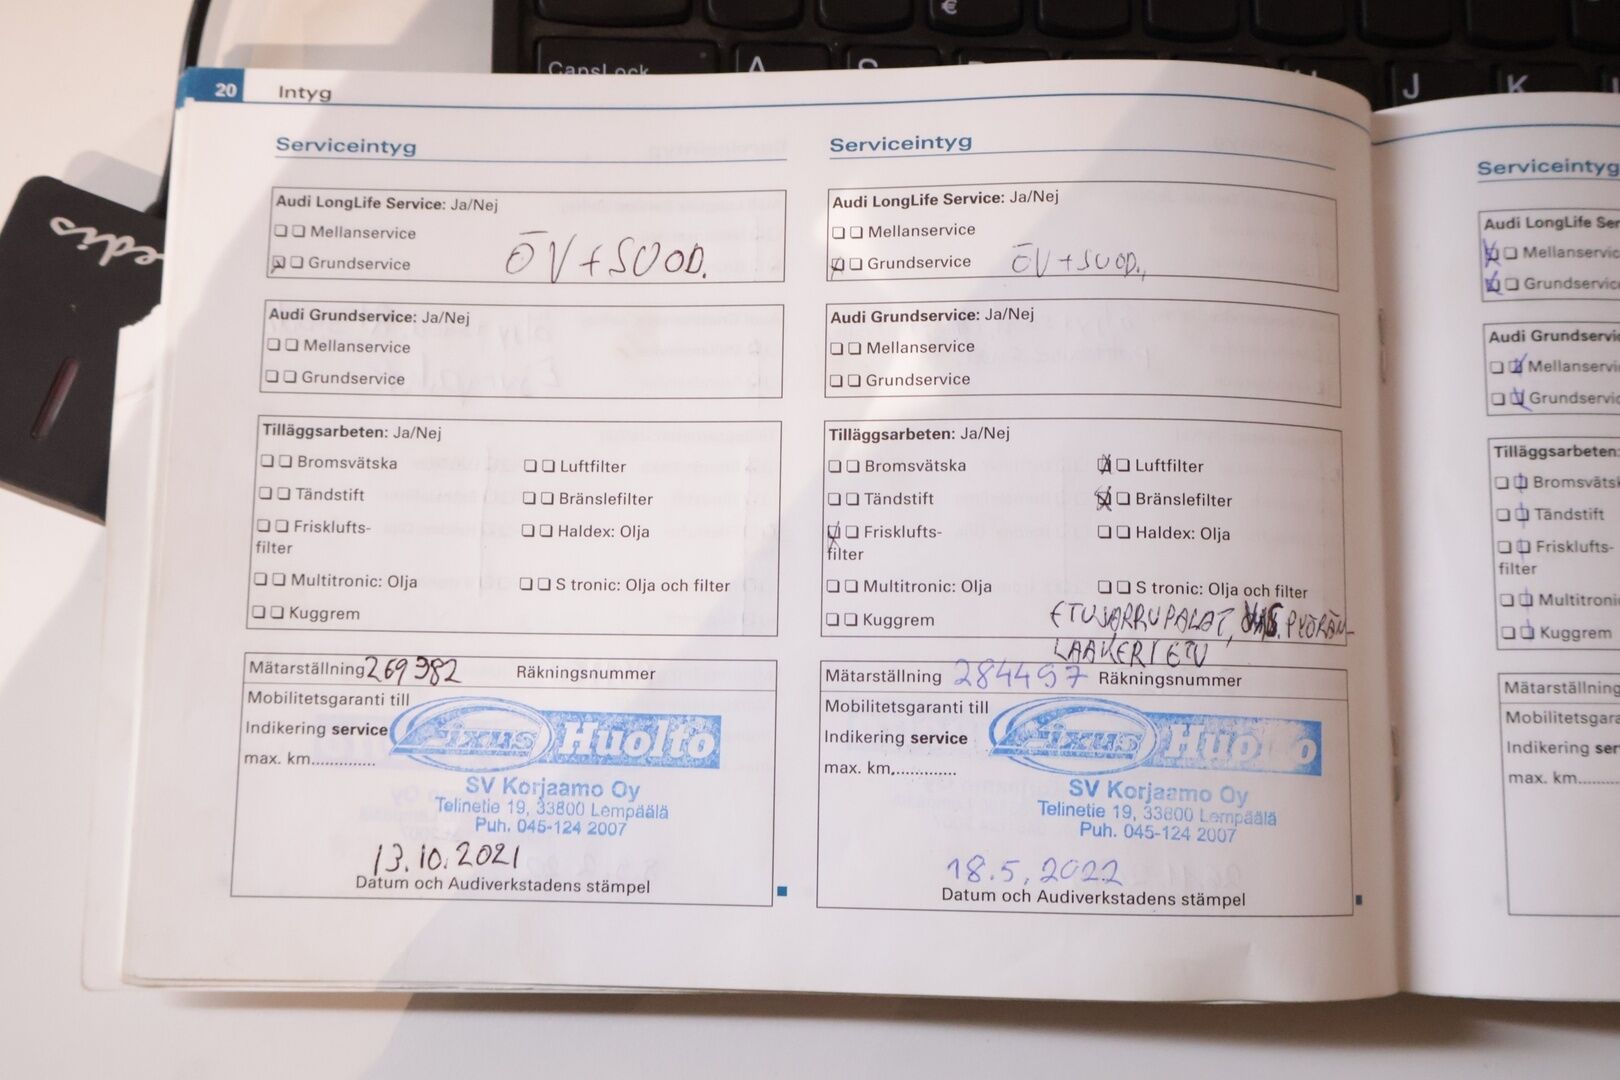 €
CapsLock A J K
20 Intyg
Serviceintyg
Audi LongLife Service: Ja/Nej
Mellanservice
Grundservice ÖV+SUOD.
Audi Grundservice: Ja/Nej
Mellanservice
Grundservice
Tilläggsarbeten: Ja/Nej
Bromsvätska Luftfilter
Tändstift Bränslefilter
Frisklufts- Haldex: Olja
filter
Multitronic: Olja S tronic: Olja och filter
Kuggrem
Mätarställning 269382 Räkningsnummer
Mobilitetsgaranti till
Indikering service
max. km..............
Fixus Huolto
SV Korjaamo Oy
Telinetie 19, 33800 Lempäälä
Puh. 045-124 2007
13.10.2021
Datum och Audiverkstadens stämpel
Serviceintyg
Audi LongLife Service: Ja/Nej
Mellanservice
Grundservice ÖV+SUOD.
Audi Grundservice: Ja/Nej
Mellanservice
Grundservice
Tilläggsarbeten: Ja/Nej
Bromsvätska Luftfilter
Tändstift Bränslefilter
Frisklufts- Haldex: Olja
filter
Multitronic: Olja S tronic: Olja och filter
Kuggrem ETUJARRUPALAT, PYÖRÄN-
LAAKERI ETU
Mätarställning 284497 Räkningsnummer
Mobilitetsgaranti till
Indikering service
max. km..............
Fixus Huolto
SV Korjaamo Oy
Telinetie 19, 33800 Lempäälä
Puh. 045-124 2007
18.5.2022
Datum och Audiverkstadens stämpel
Serviceintyg
Audi LongLife Ser
Mellanservice
Grundservice
Audi Grundservi
Mellanservi
Grundservic
Tilläggsarbeten:
Bromsvätsk
Tändstift
Frisklufts-
filter
Multitroni
Kuggrem
Mätarställning
Mobilitetsgara
Indikering ser
max. km........